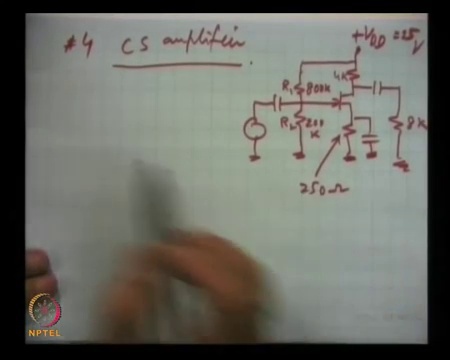 #4 CS amplifier
+VDD = 25V
4K
R1 800K
R2 200 K
8K
250Ω
NPTEL